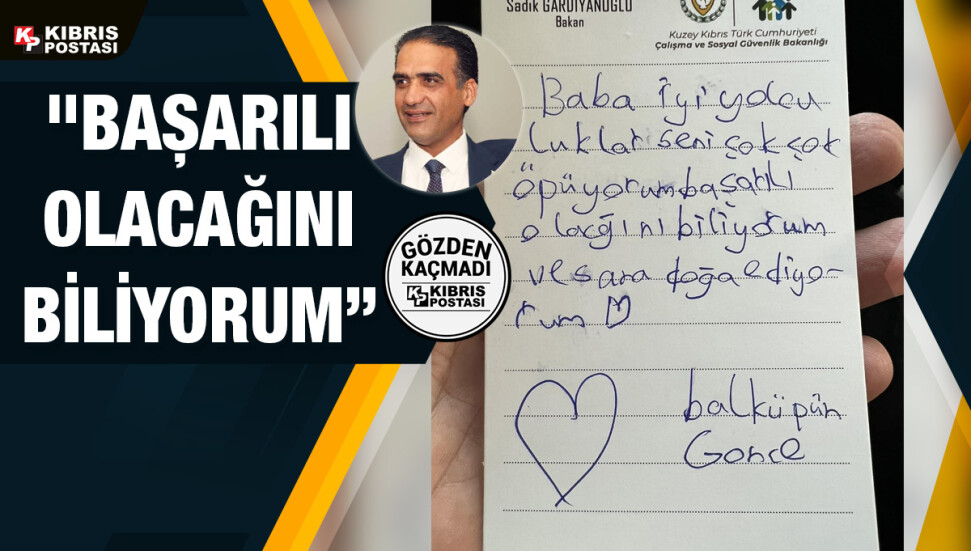 KP KIBRIS
POSTASI
"BAŞARILI
OLACAĞINI
BİLİYORUM”
GÖZDEN
KAÇMADI
KP KIBRIS
POSTASI
Sadık GARDİYANOĞLU
Bakan
Kuzey Kıbrıs Türk Cumhuriyeti
Çalışma ve Sosyal Güvenlik Bakanlığı
Baba İyi yolcu
luklar seni çok çok
öpüyorum başarılı
olacğını biliyorum
ve sana doğa ediyo-
rum
balküpün
Gonce